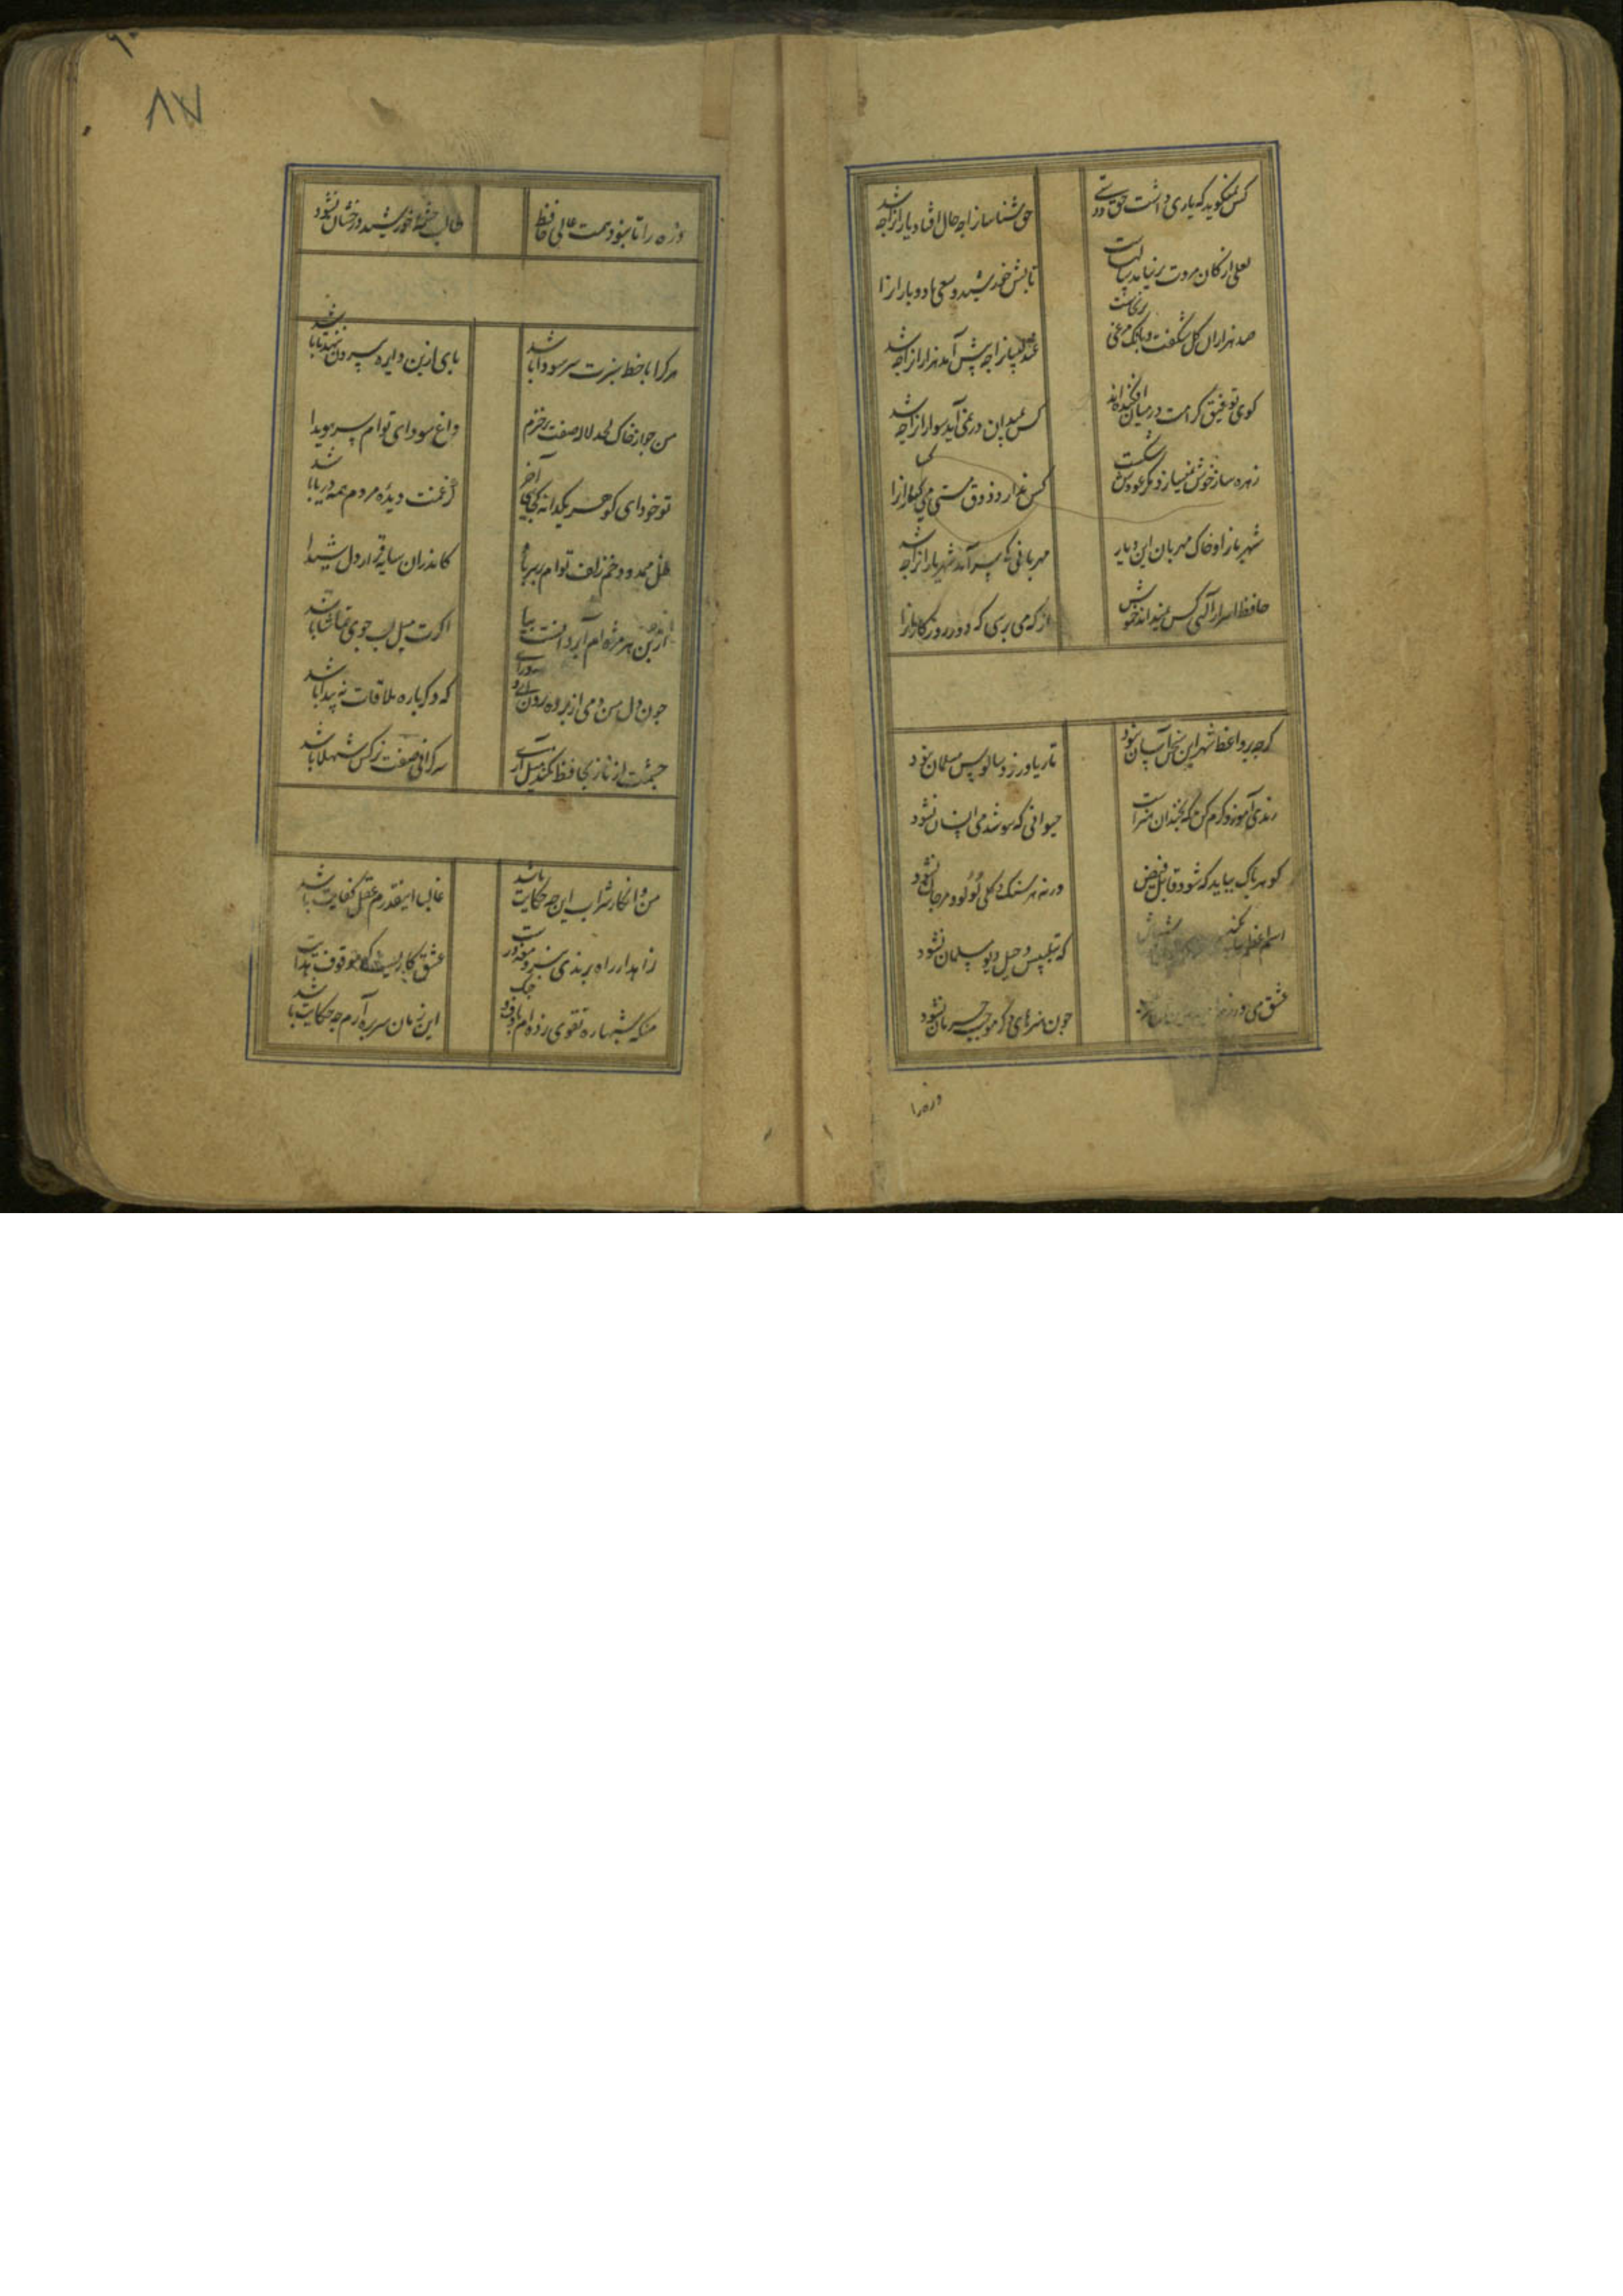 کس نمیکوید که یاری داشت حق دوستی
حق شناسانرا چه حال افتاد یارانرا چه شد
لعلی از کان مروت برنیامد سالهاست
تابش خورشید و سعی باد و بارانرا
صد هزاران کل شکفت و بانک مرغی برنخاست
عندلیبانرا چه پیش آمد هزارانرا چه شد
کوی توفیق و کرامت در میان افکنده اند
کس بمیدان در نمی آید سوارانرا چه شد
زهره ساز خوش نمیسازد مکر عودش بسوخت
کس ندارد ذوق مستی می کسارانرا
شهر یاران بود و خاک مهربانان این دیار
مهربانی کی سر آمد شهریارانرا چه شد
حافظ اسرار الهی کس نمیداند خموش
از که می پرسی که دور روزکارانرا
کرچه بر واعظ شهر این سخن آسان نشود
تا ریا ورزد و سالوس مسلمان نشود
رندی آموز و کرم کن که نه چندان هنرست
حیوانی که ننوشد می و انسان نشود
کوهر پاک بباید که شود قابل فیض
ورنه هر سنک و کلی لؤلؤ و مرجان نشود
اسم اعظم بکند
که بتلبیس و حیل دیو سلیمان نشود
عشق می ورزم
چون هنرهای دکر موجب حرمان نشود
ذره را
۸۷
ذره را تا نبود همت عالی حافظ
طالب چشمه خورشید درخشان نشود
هر کرا با خط سبزت سر سودا باشد
پای ازین دایره بیرون ننهد تا باشد
من چو از خاک لحد لاله صفت برخیزم
داغ سودای توام سر سویدا
تو خود ای کوهر یکدانه کجایی آخر
کز غمت دیده مردم همه دریا باشد
ظل ممدود خم زلف توام بر سر باد
کاندران سایه قرار دل شیدا
از بن هر مژه ام آب روانست بیا
اکرت میل لب جوی و تماشا باشد
چون دل من دمی از پرده برون آی و درآی
که دکر باره ملاقات نه پیدا باشد
چشمت از ناز بحافظ نکند میل آری
سرکرانی صفت نرکس شهلا باشد
من و انکار شراب این چه حکایت باشد
غالبا اینقدرم عقل و کفایت باشد
زاهد ار راه برندی نبرد معذورست
عشق کاریست که موقوف هدایت
منکه شبها ره تقوی زده ام با دف و چنک
این زمان سر بره آرم چه حکایت باشد